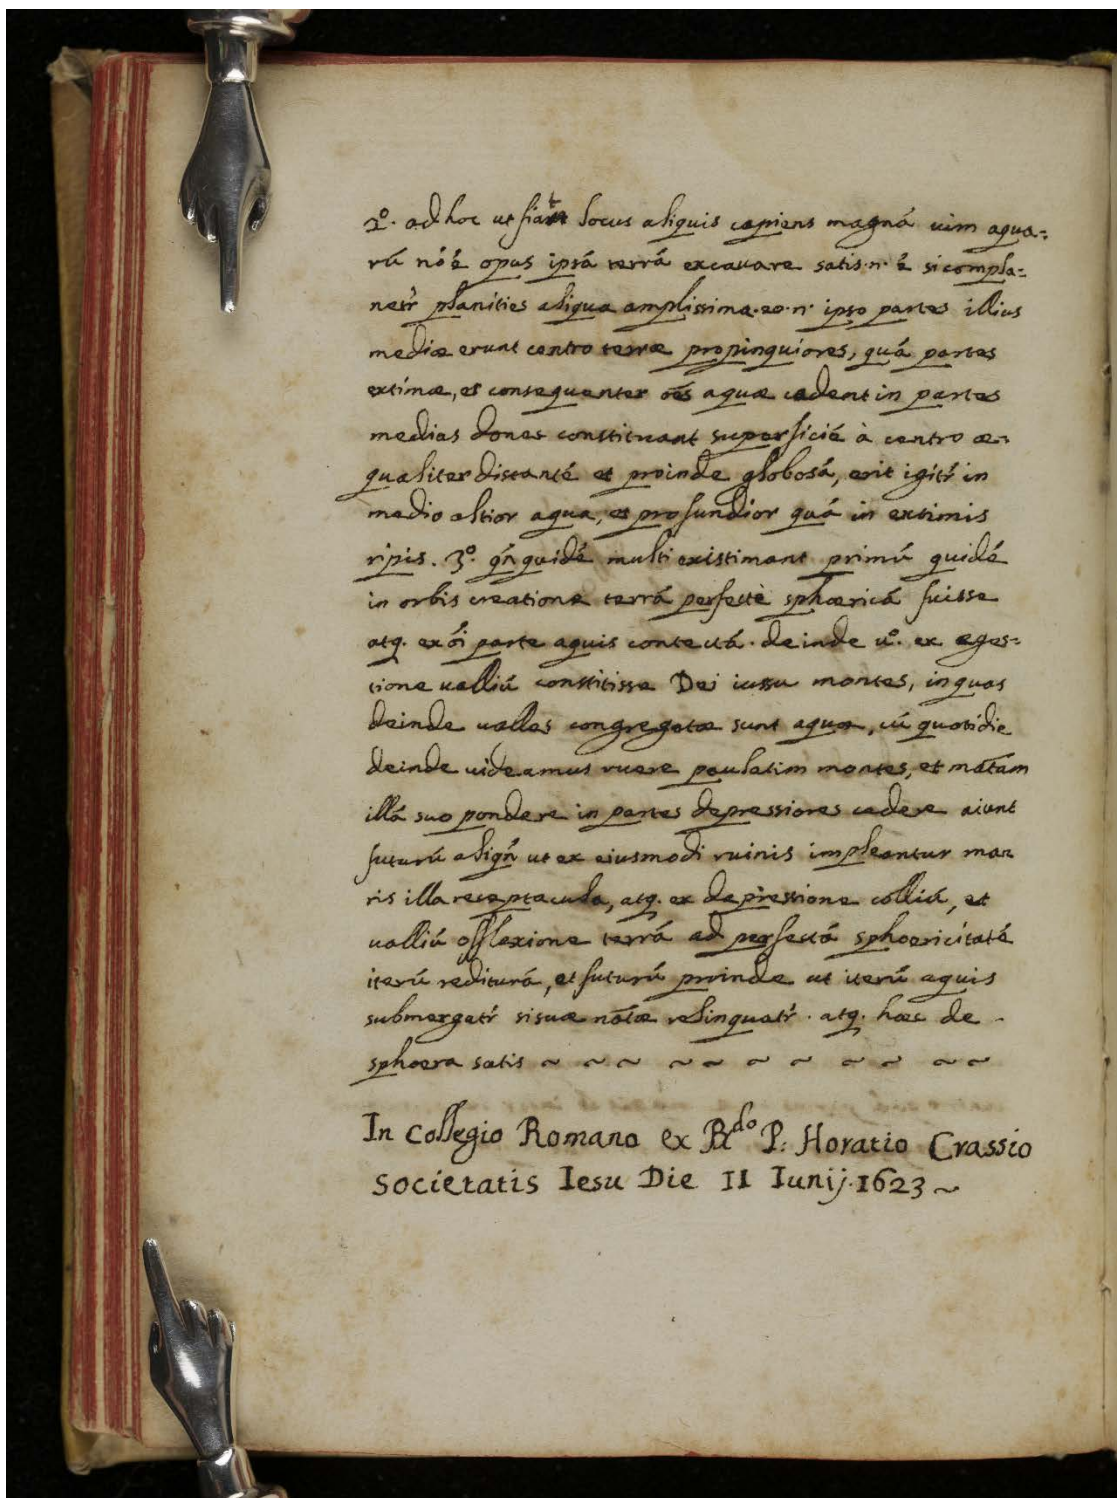 2º. ad hoc ut fiat locus aliquis capiens magná uim aqua=
rú nó é opus ipsá terrá excauare satis .n. é si compla=
netr̃ planities aliqua amplissima. eo .n. ipso partes illius
mediæ erunt centro terræ propinquiores, quá partes
extimæ, et consequenter oẽs aquæ cadent in partes
medias donec constituant superficié à centro æ=
qualiter distanté et proinde globosá, erit igitr̃ in
medio altior aqua, et profundior quá in extimis
ripis. 3º. qñ quidé multi existimant primú quidé
in orbis creatione terrá perfectè sphæricá fuisse
atq. ex õi parte aquis contectá. deinde uº. ex eges=
tione ualliú constitisse Dei iussu montes, in quas
deinde ualles congregatæ sunt aquæ, cú quotidie
deinde uideamus ruere paulatim montes, et mãtam
illá suo pondere in partes depressiores cadere aiunt
futurú aliqñ ut ex eiusmodi ruinis impleantur ma=
ris illa receptacula, atq. ex depressione colliú, et
ualliú offlexione terrá ad perfectá sphæricitatá
iterú rediturá, et futurú proinde ut iterú aquis
submergatr̃ si suæ nãtæ relinquatr̃. atq. hæc de
sphæra satis ~ ~ ~ ~ ~ ~ ~ ~ ~ ~ ~
In Collegio Romano ex Rdo P. Horatio Crassio
Societatis Iesu Die 11 Iunij. 1623 ~